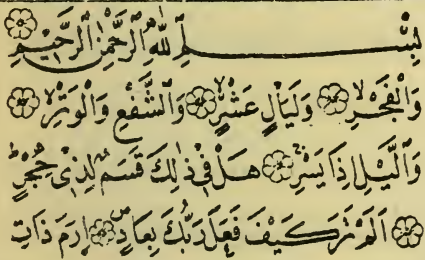 بِسْمِ اللّٰهِ الرَّحْمٰنِ الرَّحِيْمِ
وَالْفَجْرِ ۙ وَلَيَالٍ عَشْرٍ ۙ وَّالشَّفْعِ وَالْوَتْرِ ۙ
وَالَّيْلِ اِذَا يَسْرِ ۚ هَلْ فِيْ ذٰلِكَ قَسَمٌ لِّذِيْ حِجْرٍ ؕ
اَلَمْ تَرَ كَيْفَ فَعَلَ رَبُّكَ بِعَادٍ ۪ اِرَمَ ذَاتِ